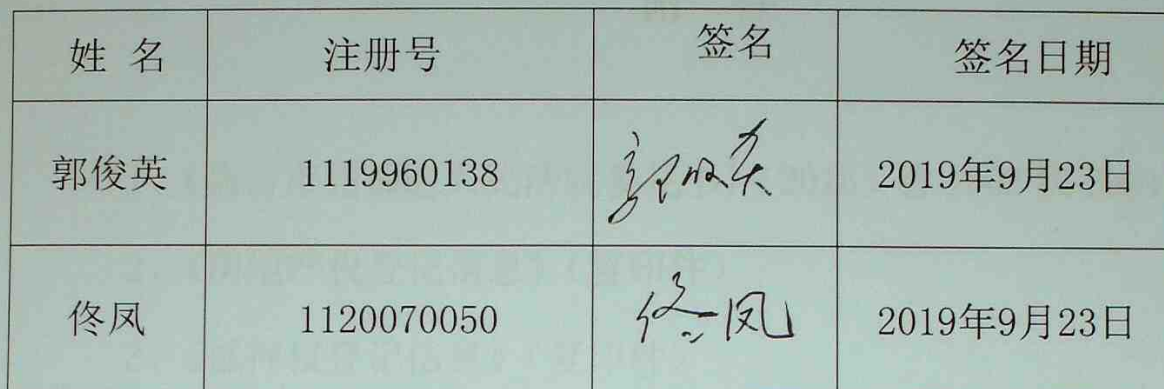 姓 名 注册号 签名 签名日期
郭俊英 1119960138 郭俊英 2019年9月23日
佟凤 1120070050 佟凤 2019年9月23日